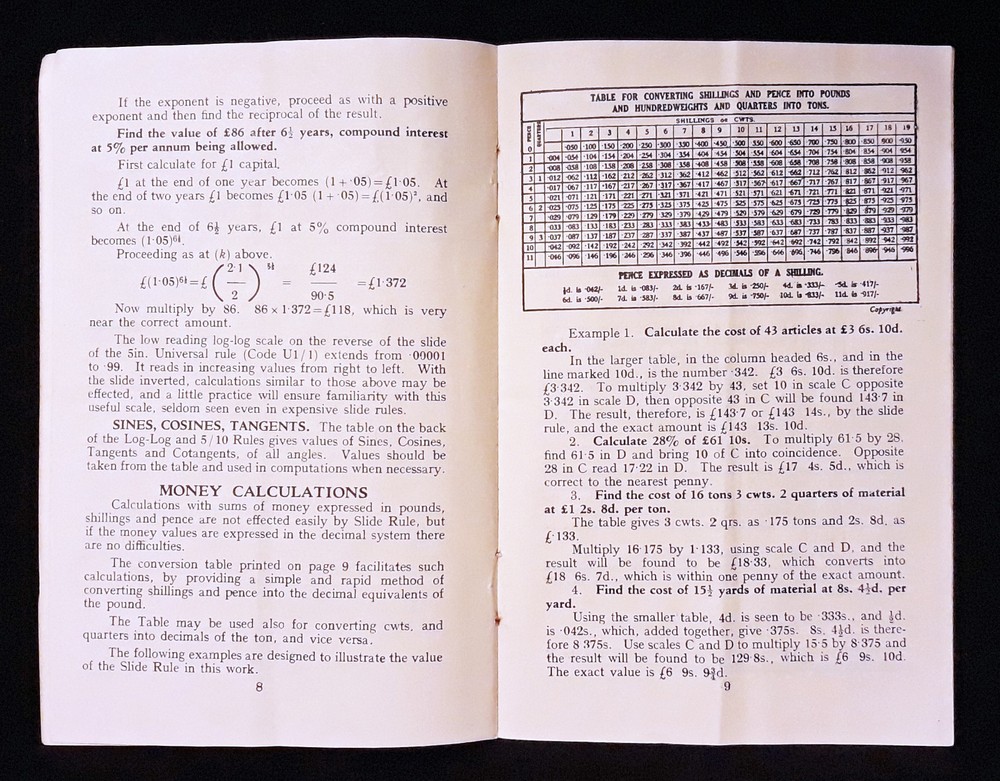 If the exponent is negative, proceed as with a positive
exponent and then find the reciprocal of the result.
Find the value of £86 after 6½ years, compound interest
at 5% per annum being allowed.
First calculate for £1 capital.
£1 at the end of one year becomes (1 + ·05)=£1·05. At
the end of two years £1 becomes £1·05 (1 + ·05)=£(1·05)², and
so on.
At the end of 6½ years, £1 at 5% compound interest
becomes (1·05)⁶½.
Proceeding as at (k) above.
£(1·05)⁶½=£ (2·1 / 2) ⁵½ = £124 / 90·5 =£1·372
Now multiply by 86. 86 × 1·372=£118, which is very
near the correct amount.
The low reading log-log scale on the reverse of the slide
of the 5in. Universal rule (Code U1/1) extends from ·00001
to ·99. It reads in increasing values from right to left. With
the slide inverted, calculations similar to those above may be
effected, and a little practice will ensure familiarity with this
useful scale, seldom seen even in expensive slide rules.
SINES, COSINES, TANGENTS. The table on the back
of the Log-Log and 5/10 Rules gives values of Sines, Cosines,
Tangents and Cotangents, of all angles. Values should be
taken from the table and used in computations when necessary.
MONEY CALCULATIONS
Calculations with sums of money expressed in pounds,
shillings and pence are not effected easily by Slide Rule, but
if the money values are expressed in the decimal system there
are no difficulties.
The conversion table printed on page 9 facilitates such
calculations, by providing a simple and rapid method of
converting shillings and pence into the decimal equivalents of
the pound.
The Table may be used also for converting cwts. and
quarters into decimals of the ton, and vice versa.
The following examples are designed to illustrate the value
of the Slide Rule in this work.
8
TABLE FOR CONVERTING SHILLINGS AND PENCE INTO POUNDS
AND HUNDREDWEIGHTS AND QUARTERS INTO TONS.
PENCE QUARTERS SHILLINGS or CWTS.
1 2 3 4 5 6 7 8 9 10 11 12 13 14 15 16 17 18 19
0 ·050 ·100 ·150 ·200 ·250 ·300 ·350 ·400 ·450 ·500 ·550 ·600 ·650 ·700 ·750 ·800 ·850 ·900 ·950
1 ·004 ·054 ·104 ·154 ·204 ·254 ·304 ·354 ·404 ·454 ·504 ·554 ·604 ·654 ·704 ·754 ·804 ·854 ·904 ·954
2 ·008 ·058 ·108 ·158 ·208 ·258 ·308 ·358 ·408 ·458 ·508 ·558 ·608 ·658 ·708 ·758 ·808 ·858 ·908 ·958
3 1 ·012 ·062 ·112 ·162 ·212 ·262 ·312 ·362 ·412 ·462 ·512 ·562 ·612 ·662 ·712 ·762 ·812 ·862 ·912 ·962
4 ·017 ·067 ·117 ·167 ·217 ·267 ·317 ·367 ·417 ·467 ·517 ·567 ·617 ·667 ·717 ·767 ·817 ·867 ·917 ·967
5 ·021 ·071 ·121 ·171 ·221 ·271 ·321 ·371 ·421 ·471 ·521 ·571 ·621 ·671 ·721 ·771 ·821 ·871 ·921 ·971
6 2 ·025 ·075 ·125 ·175 ·225 ·275 ·325 ·375 ·425 ·475 ·525 ·575 ·625 ·675 ·725 ·775 ·825 ·875 ·925 ·975
7 ·029 ·079 ·129 ·179 ·229 ·279 ·329 ·379 ·429 ·479 ·529 ·579 ·629 ·679 ·729 ·779 ·829 ·879 ·929 ·979
8 ·033 ·083 ·133 ·183 ·233 ·283 ·333 ·383 ·433 ·483 ·533 ·583 ·633 ·683 ·733 ·783 ·833 ·883 ·933 ·983
9 3 ·037 ·087 ·137 ·187 ·237 ·287 ·337 ·387 ·437 ·487 ·537 ·587 ·637 ·687 ·737 ·787 ·837 ·887 ·937 ·987
10 ·042 ·092 ·142 ·192 ·242 ·292 ·342 ·392 ·442 ·492 ·542 ·592 ·642 ·692 ·742 ·792 ·842 ·892 ·942 ·992
11 ·046 ·096 ·146 ·196 ·246 ·296 ·346 ·396 ·446 ·496 ·546 ·596 ·646 ·696 ·746 ·796 ·846 ·896 ·946 ·996
PENCE EXPRESSED AS DECIMALS OF A SHILLING.
½d. is ·042/- 1d. is ·083/- 2d. is ·167/- 3d. is ·250/- 4d. is ·333/- 5d. is ·417/-
6d. is ·500/- 7d. is ·583/- 8d. is ·667/- 9d. is ·750/- 10d. is ·833/- 11d. is ·917/-
Copyright
Example 1. Calculate the cost of 43 articles at £3 6s. 10d.
each.
In the larger table, in the column headed 6s., and in the
line marked 10d., is the number ·342. £3 6s. 10d. is therefore
£3·342. To multiply 3·342 by 43, set 10 in scale C opposite
3·342 in scale D, then opposite 43 in C will be found 143·7 in
D. The result, therefore, is £143·7 or £143 14s., by the slide
rule, and the exact amount is £143 13s. 10d.
2. Calculate 28% of £61 10s. To multiply 61·5 by 28.
find 61·5 in D and bring 10 of C into coincidence. Opposite
28 in C read 17·22 in D. The result is £17 4s. 5d., which is
correct to the nearest penny.
3. Find the cost of 16 tons 3 cwts. 2 quarters of material
at £1 2s. 8d. per ton.
The table gives 3 cwts. 2 qrs. as ·175 tons and 2s. 8d. as
£·133.
Multiply 16·175 by 1·133, using scale C and D, and the
result will be found to be £18·33, which converts into
£18 6s. 7d., which is within one penny of the exact amount.
4. Find the cost of 15½ yards of material at 8s. 4½d. per
yard.
Using the smaller table, 4d. is seen to be ·333s., and ½d.
is ·042s., which, added together, give ·375s. 8s. 4½d. is there-
fore 8·375s. Use scales C and D to multiply 15·5 by 8·375 and
the result will be found to be 129·8s., which is £6 9s. 10d.
The exact value is £6 9s. 9¾d.
9